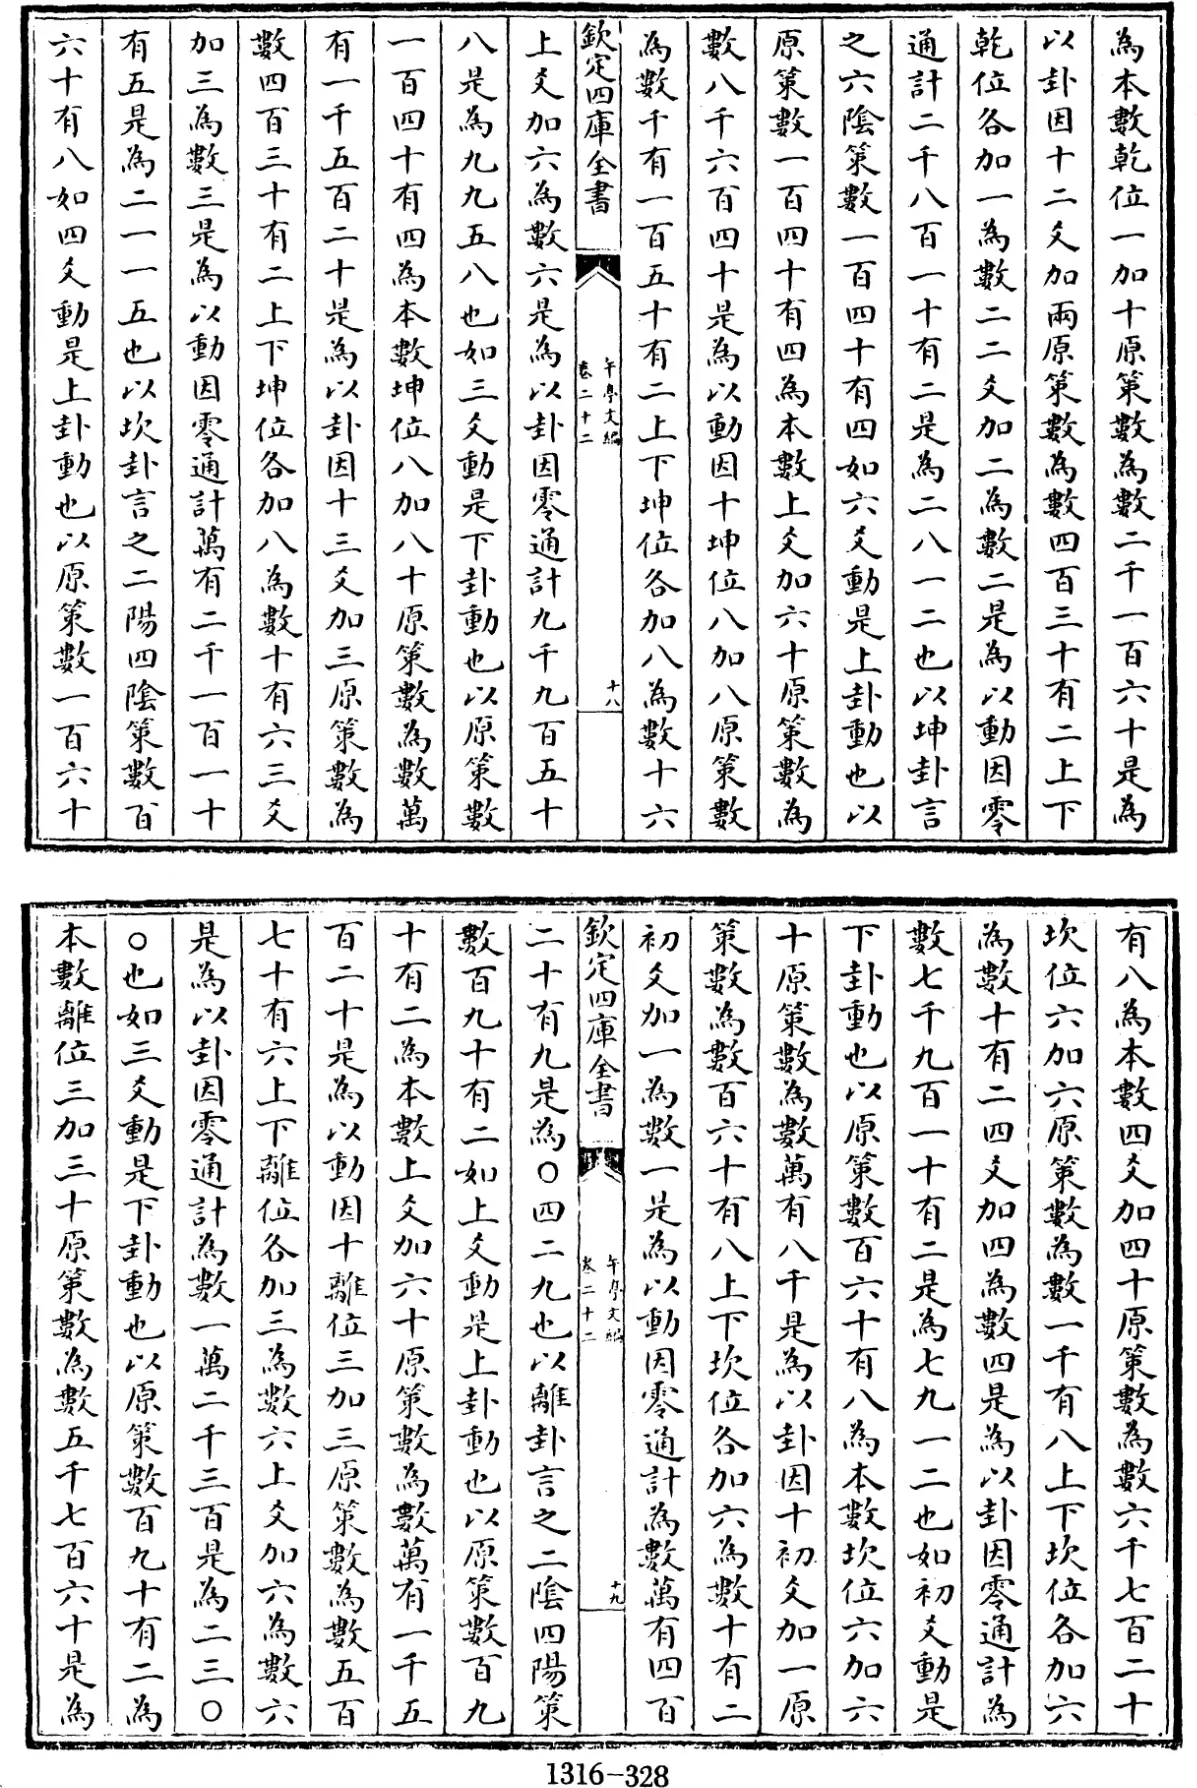 為本數乾位一加十原策數為數二千一百六十是為
以卦因十二爻加兩原策數為數四百三十有二上下
乾位各加一為數二二爻加二為數二是為以動因零
通計二千八百一十有二是為二八一二也以坤卦言
之六陰策數一百四十有四如六爻動是上卦動也以
原策數一百四十有四為本數上爻加六十原策數為
數八千六百四十是為以動因十坤位八加八原策數
為數千有一百五十有二上下坤位各加八為數十六
欽定四庫全書
午亭文編
卷二十二
十八
上爻加六為數六是為以卦因零通計九千九百五十
八是為九九五八也如三爻動是下卦動也以原策數
一百四十有四為本數坤位八加八十原策數為數萬
有一千五百二十是為以卦因十三爻加三原策數為
數四百三十有二上下坤位各加八為數十有六三爻
加三為數三是為以動因零通計萬有二千一百一十
有五是為二一一五也以坎卦言之二陽四陰策數百
六十有八如四爻動是上卦動也以原策數一百六十
有八為本數四爻加四十原策數為數六千七百二十
坎位六加六原策數為數一千有八上下坎位各加六
為數十有二四爻加四為數四是為以卦因零通計為
數七千九百一十有二是為七九一二也如初爻動是
下卦動也以原策數百六十有八為本數坎位六加六
十原策數為數萬有八千是為以卦因十初爻加一原
策數為數百六十有八上下坎位各加六為數十有二
初爻加一為數一是為以動因零通計為數萬有四百
欽定四庫全書
午亭文編
卷二十二
十九
二十有九是為〇四二九也以離卦言之二陰四陽策
數百九十有二如上爻動是上卦動也以原策數百九
十有二為本數上爻加六十原策數為數萬有一千五
百二十是為以動因十離位三加三原策數為數五百
七十有六上下離位各加三為數六上爻加六為數六
是為以卦因零通計為數一萬二千三百是為二三〇
〇也如三爻動是下卦動也以原策數百九十有二為
本數離位三加三十原策數為數五千七百六十是為
1316-328